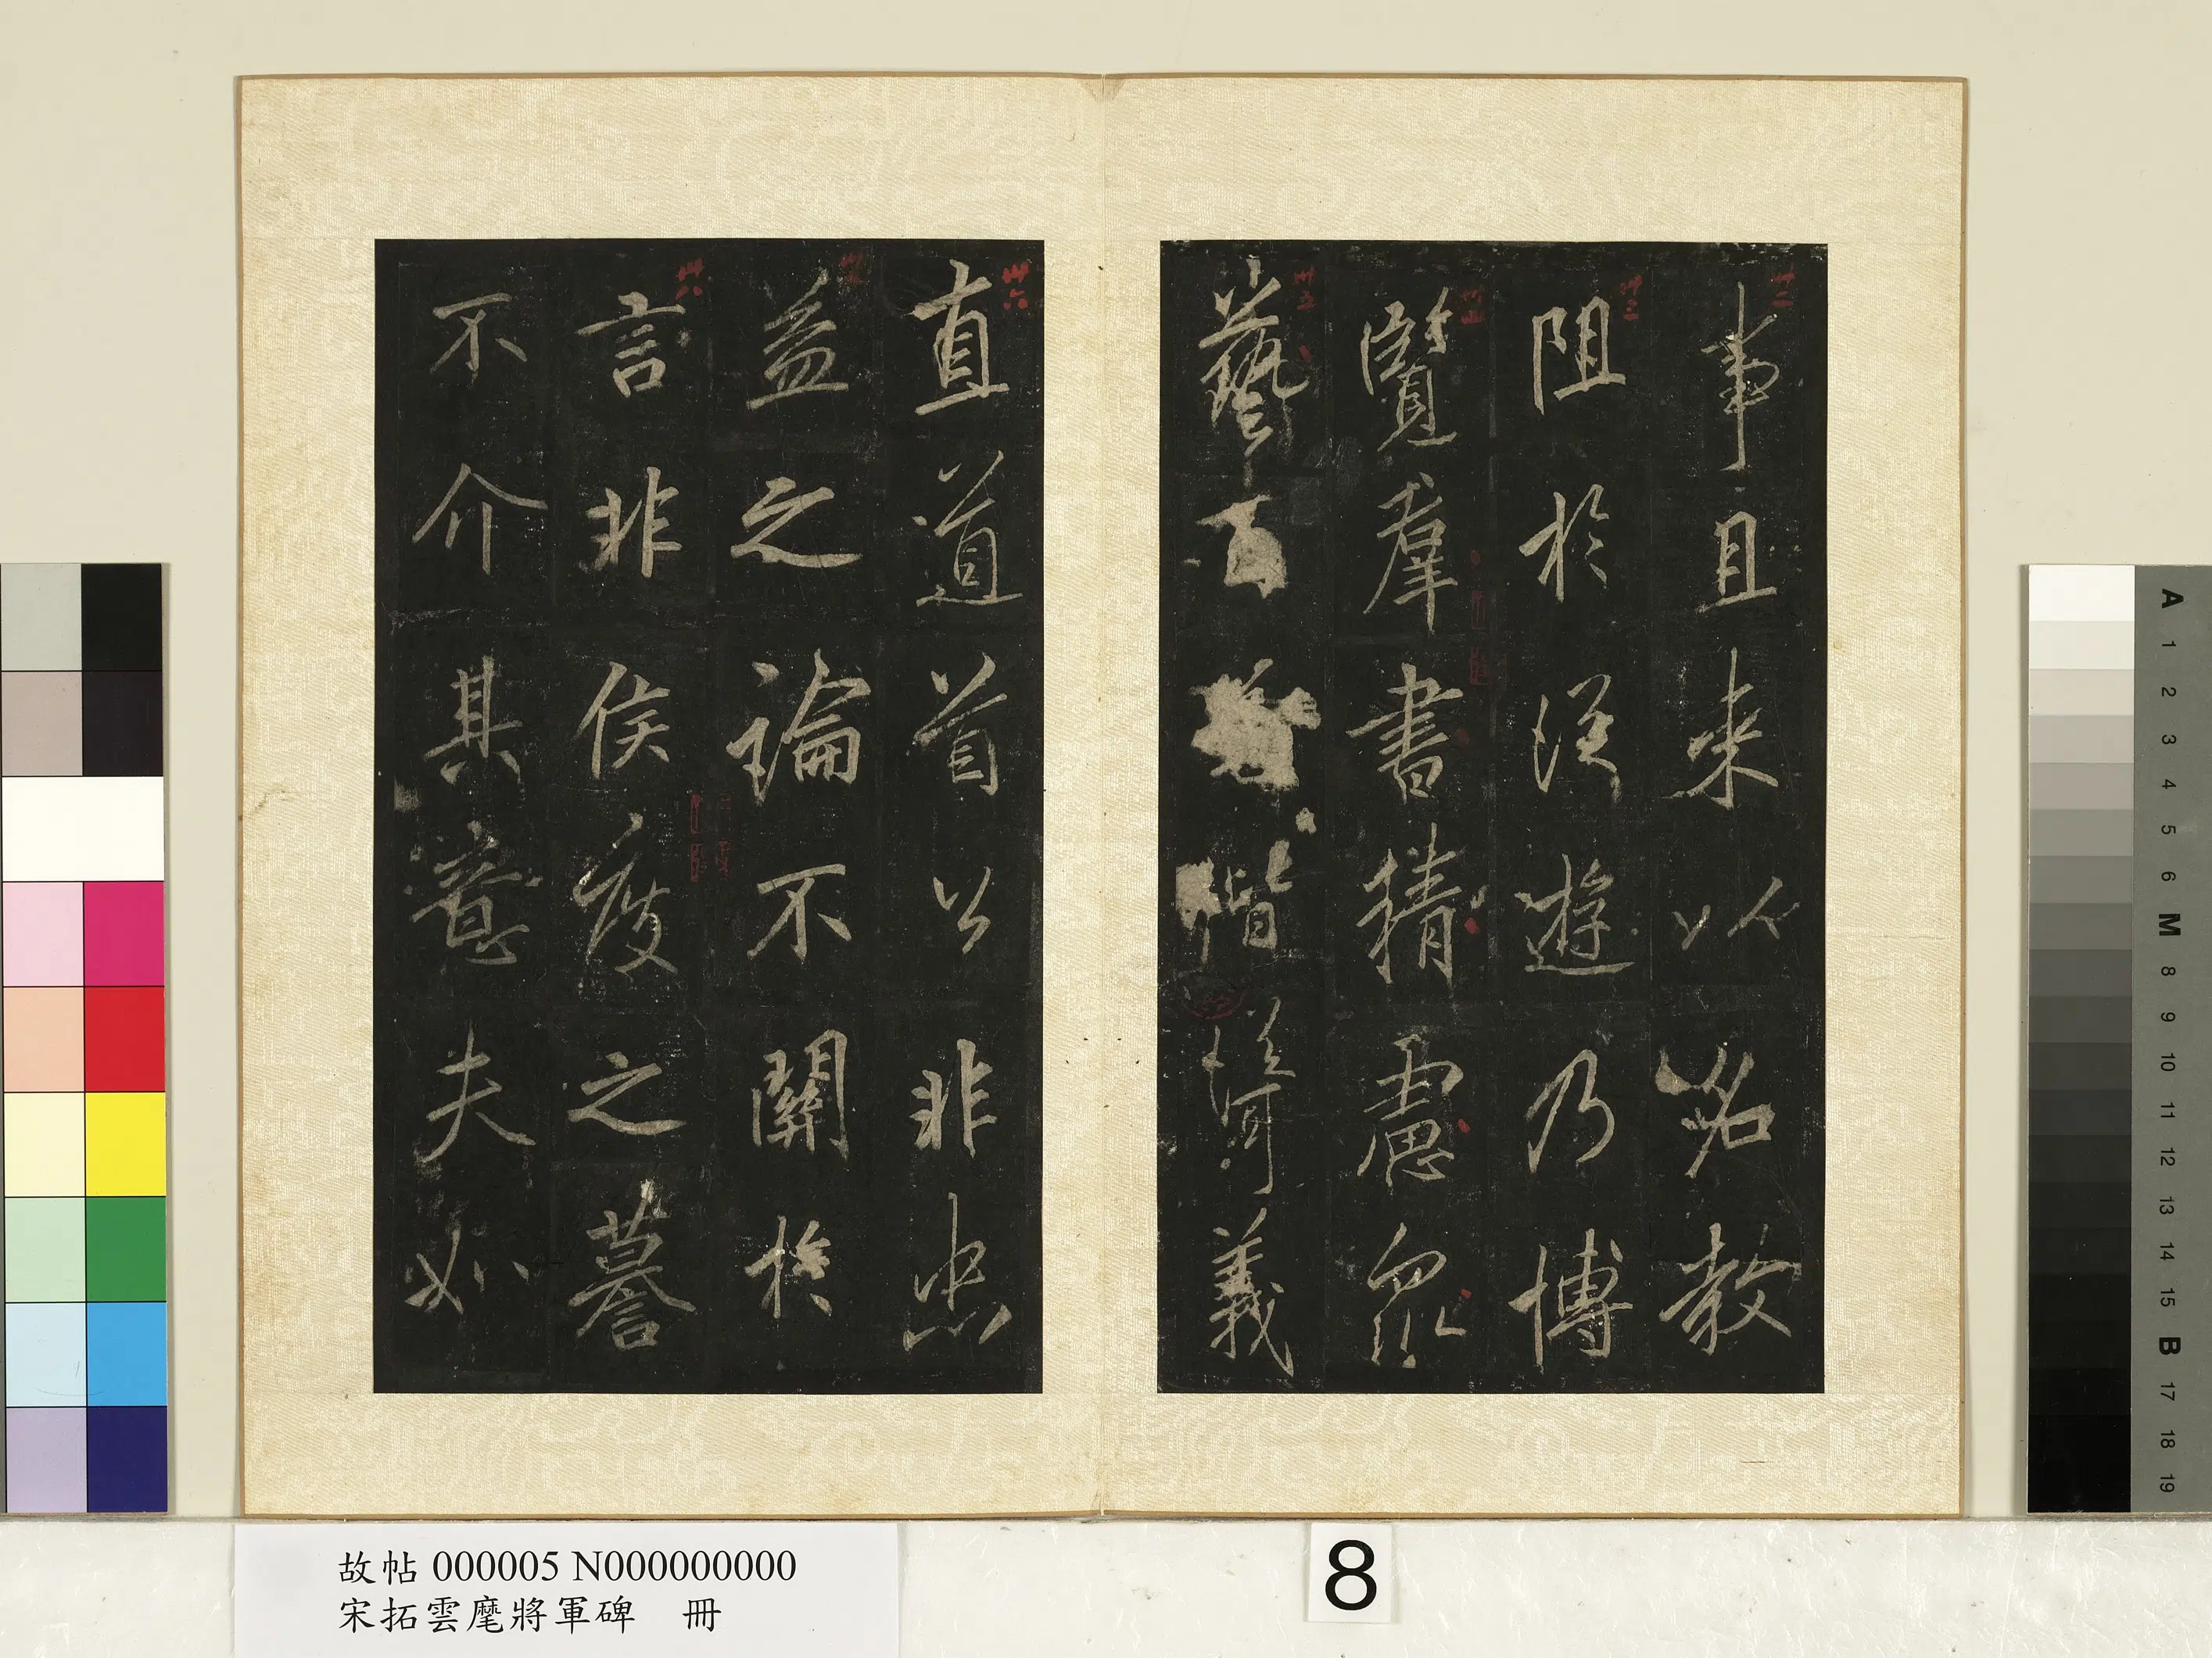 事且束以名教
阻於從遊乃博
覽群書精慮衆
藝百偕義
直道首公非忠
益之論不關於
言非侯度之謩
不介其意夫如
故帖 000005 N000000000
宋拓雲麾將軍碑 冊
8
A 1 2 3 4 5 6 M 8 9 10 11 12 13 14 15 B 17 18 19